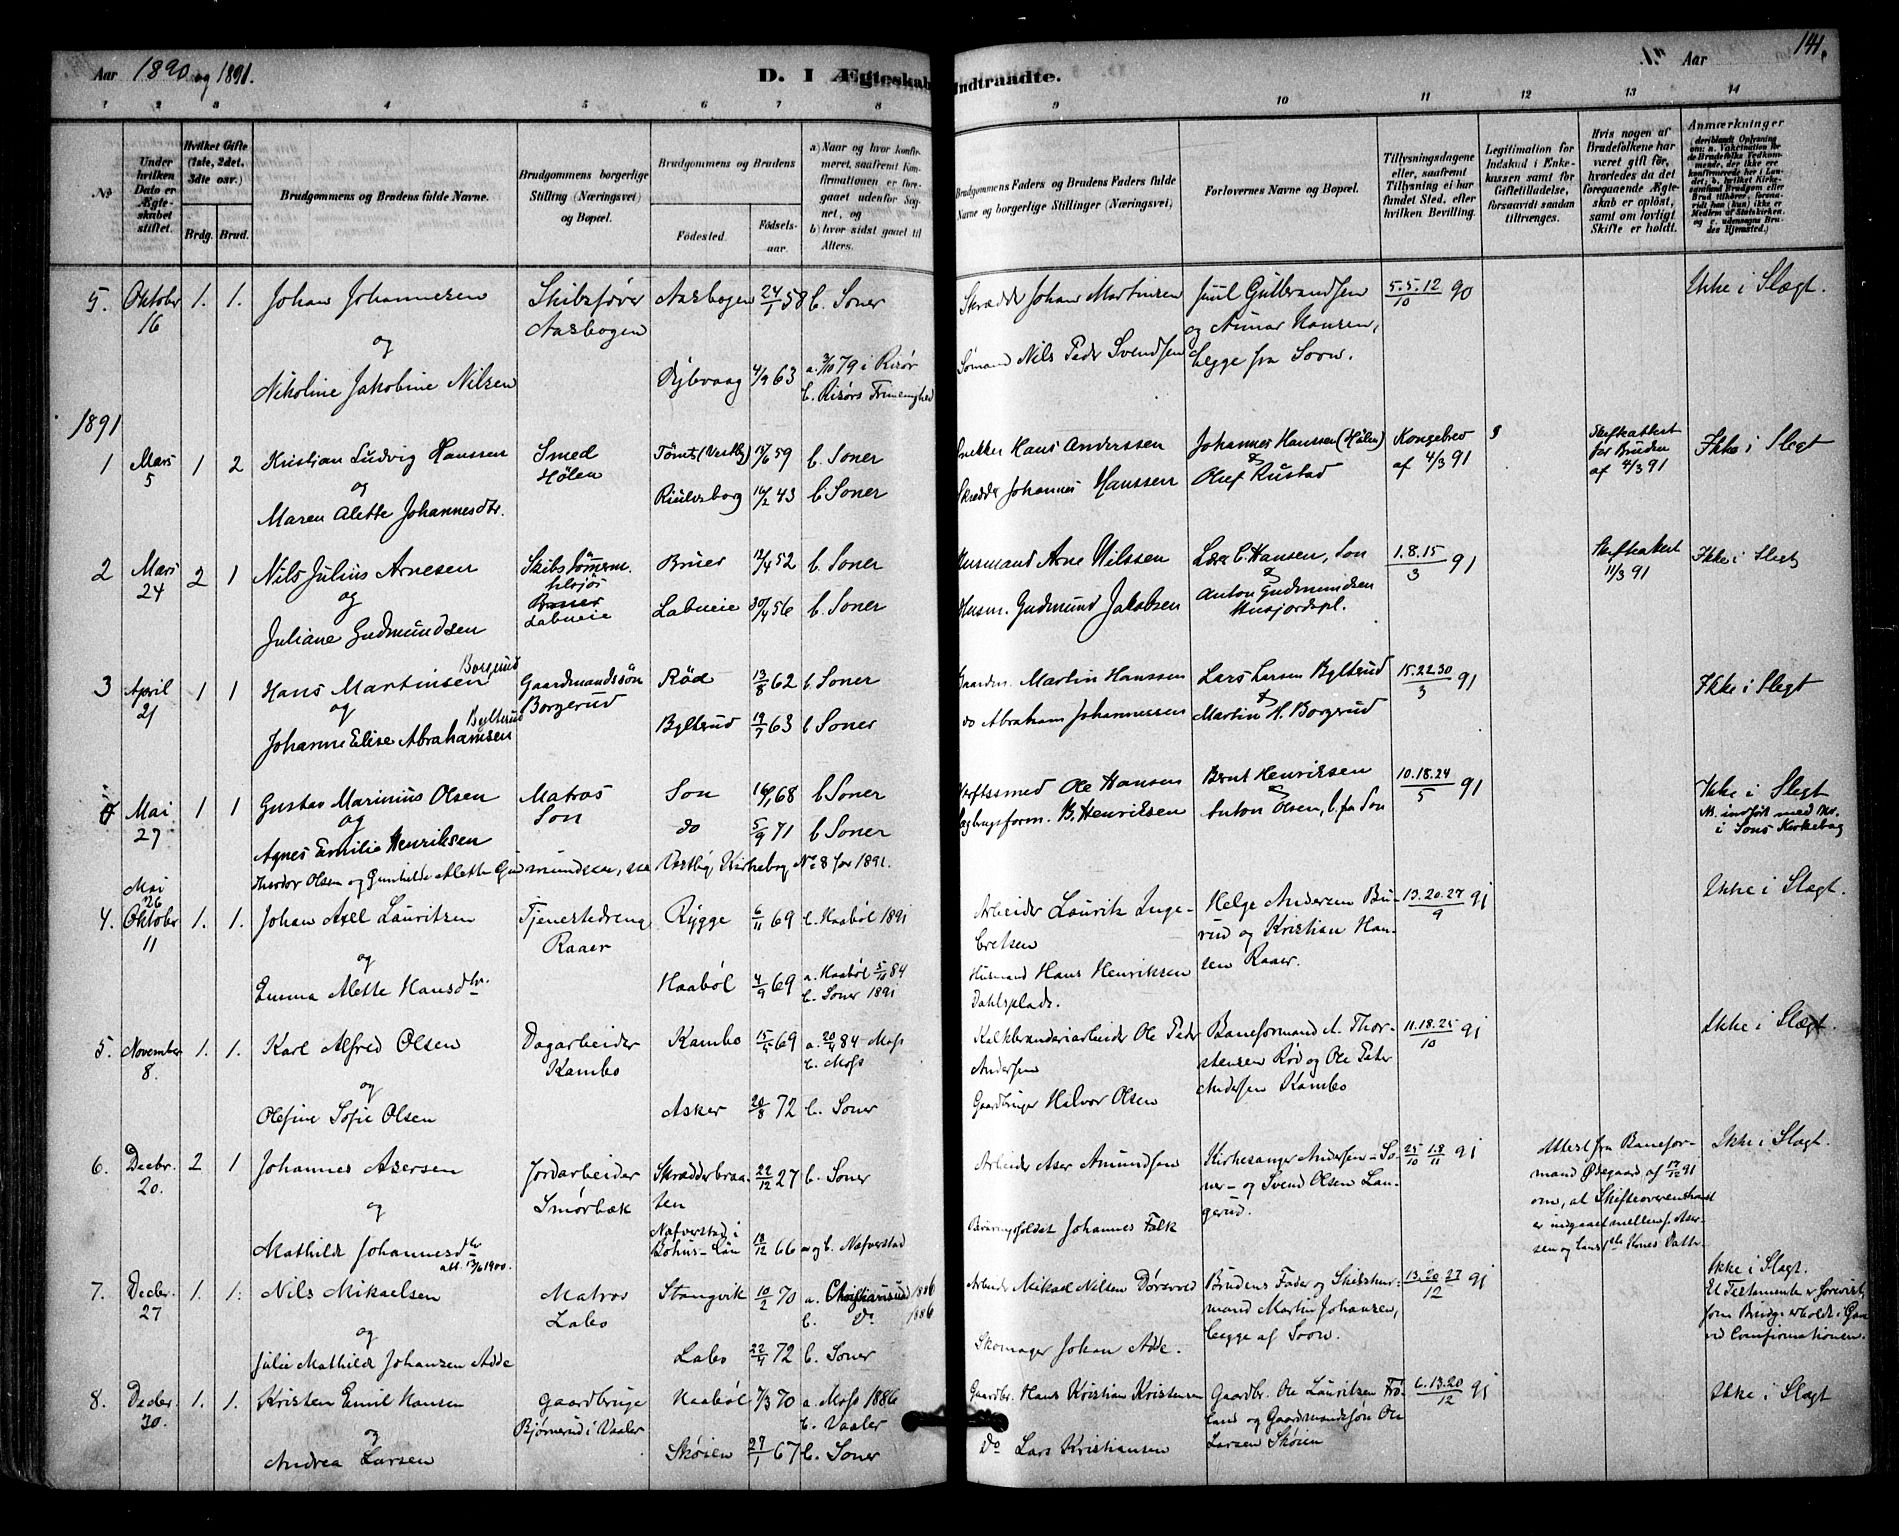 Aar 1890 og 1891.
D. I Ægteskab Indtraadte.
Aar
141.
1 2 3 4 5 6 7 8 9 10 11 12 13 14
No
Under hvilken Dato er Ægteskabet stiftet.
Hvilket Gifte (1ste, 2det, 3die osv.)
Brdg.
Brud.
Brudgommens og Brudens fulde Navne.
Brudgommens borgerlige Stilling (Næringsvei) og Bopæl.
Brudgommens og Brudens
Fødested.
Fødselsaar.
a) Naar og hvor konfirmeret, saafremt Konfirmationen er foregaaet udenfor Sognet, og
b) hvor sidst gaaet til Alters.
Brudgommens Faders og Brudens Faders fulde Navne og borgerlige Stillinger (Næringsvei)
Forlovernes Navne og Bopæl.
Tillysningsdagene eller, saafremt Tillysning ei har fundet Sted, efter hvilken Bevilling.
Legitimation for Indskud i Enkekassen samt for Giftetilladelse, forsaavidt saadan tiltrænges.
Hvis nogen af Brudefolkene har været gift før, hvorledes da det foregaaende Ægteskab er opløst, samt om lovligt Skifte er holdt.
Anmærkninger
5. Oktober 16 1. 1. Johan Johannesen Skibsfører Aasbogen Aasbogen 24/1 58 b. Soner Skrædder Johan Martinsen Juul Gulbrandsen og Aunar Hansen, begge fra Soon. 5.5.12/10 90 Ikke i Slægt.
og
Nikoline Jakobine Nilsen Dybvaag 4/9 63 a. 3/10 79 i Risør b. Risørs Frimenighed Sømand Nils Peder Svendsen
1891
1 Mars 5 1 2 Kristian Ludvig Hanssen Smed Hølen Tømt (Vestby) 17/6 59 b. Soner Snekker Hans Anderssen Johannes Hanssen (Hølen) & Olaf Rustad Kongebrev af 4/3 91 Skifteattest for Bruden af 4/3 91 Ikke i Slegt
og
Maren Alette Johannesdtr. 16/2 43 b Soner Skrædder Johannes Hanssen
2 Mars 24 2 1 Nils Julius Arnesen Skibstømerm. tilsjøs Labueie Bruer 12/4 52 b. Soner Husmand Arne Nilssen Lars C. Hansen, Son & Anton Gudmundsen 1.8.15/3 91 Skifteattest 11/3 91 Ikke i Slegt
og
Juliane Gudmundsen Labueie 30/4 56 b. Soner Husm. Gudmund Jakobsen
3 April 21 1 1 Hans Martinsen Borgerud Gaardmandssøn Borgerud Rød 13/8 62 b. Soner Gaardm. Martin Hanssen Lars Larsen Bylterud & Martin H. Borgerud 15.22.30/3 91 Ikke i Slegt
og
Johanne Elise Abrahamsen Bylterud Bylterud 19/7 63 b Soner do Abraham Johannessen
Mai 27 1 1 Gustav Marinius Olsen Matros Son Son 16/1 68 b Soner Ole Hansen Bernt Henriksen & Anton Olsen, b. fra Son 10.18.24/5 91 Ikke i Slegt
og
Agnes Emilie Henriksen do 5/9 71 b Soner B. Henriksen indført med No. i Sons Kirkebog
Mai 26 Theodor Olsen og Gunhilde Alette Gudmundsen, se Vestby Kirkebog No 8 for 1891.
4. Oktober 11 1. 1. Johan Axel Lauritsen Tjenestedreng Raaer Rygge 6/11 69 b. Haabøl 1891 Arbeider Laurits Ingebretsen Helge Andersen Burud og Kristian Hansen Raaer. 13.20.27/9 91 Ikke i Slægt.
og
Emma Alette Hansdtr. Haabøl 4/9 69 a. Haabøl 5/10 84 b. Soner 1891 Husmand Hans Henriksen Dahlsplads.
5. November 8. 1. 1. Karl Alfred Olsen Dagarbeider Kambo Kambo 15/5 69 a. 20/4 84 Moss b. Moss Kalkbrænderiarbeider Ole Peder Andersen Baneformand A. Thorstensen Rød og Ole Peter Andersen Kambo 11.18.25/10 91 Ikke i Slægt.
og
Olefine Sofie Olsen Asker 20/8 72 b. Soner Gaardbruger Halvor Olsen
6. Decbr. 20. 2 1 Johannes Asersen Jordarbeider Smørbæk Skrædderbraaten 22/12 27 b. Soner Arbeider Aser Amundsen Kirkesanger Andersen – Soner – og Svend Olsen Langerud. 25/10 1.8/11 91 Attest fra Baneformand Ødegaard af 17/12 91 om, at Skifteoverenskomst er indgaaet mellem J. Asersen og hans Ikke i Slægt.
og
Mathilde Johannesdtr att. 13/6 1900. Nafverstad i Bohus-Län 18/12 66 a og b. Nafverstad Johannes Falk
7. Decbr. 27 1. 1. Nils Mikaelsen Matros Labo Stangvik 10/2 70 a. Christiansund 1886 b. Do 1886 Arbeider Mikael Nilsen Brudens Fader og Skibstømmermand Martin Johansen, begge af Soon. 13.20.27/12 91 Ikke i Slægt.
og
Julie Mathilde Johansen Adde Labo 22/4 72 b. Soner Skomager Johan Adde.
8. Decbr 30. 1. 1. Kristen Emil Hansen Gaardbruger Bjørnerud i Vaaler Haabøl 7/3 70 a. Moss 1886 b. Vaaler Gaardbr. Hans Kristian Kristensen Gaardbr. Ole Lauritsen Frøland og Gaardmandssøn Ole Larsen Skøien 6.13.20/12 91 Ikke i Slægt
og
Andrea Larsen Skøien 27/1 67 b. Soner Do Lars Kristiansen